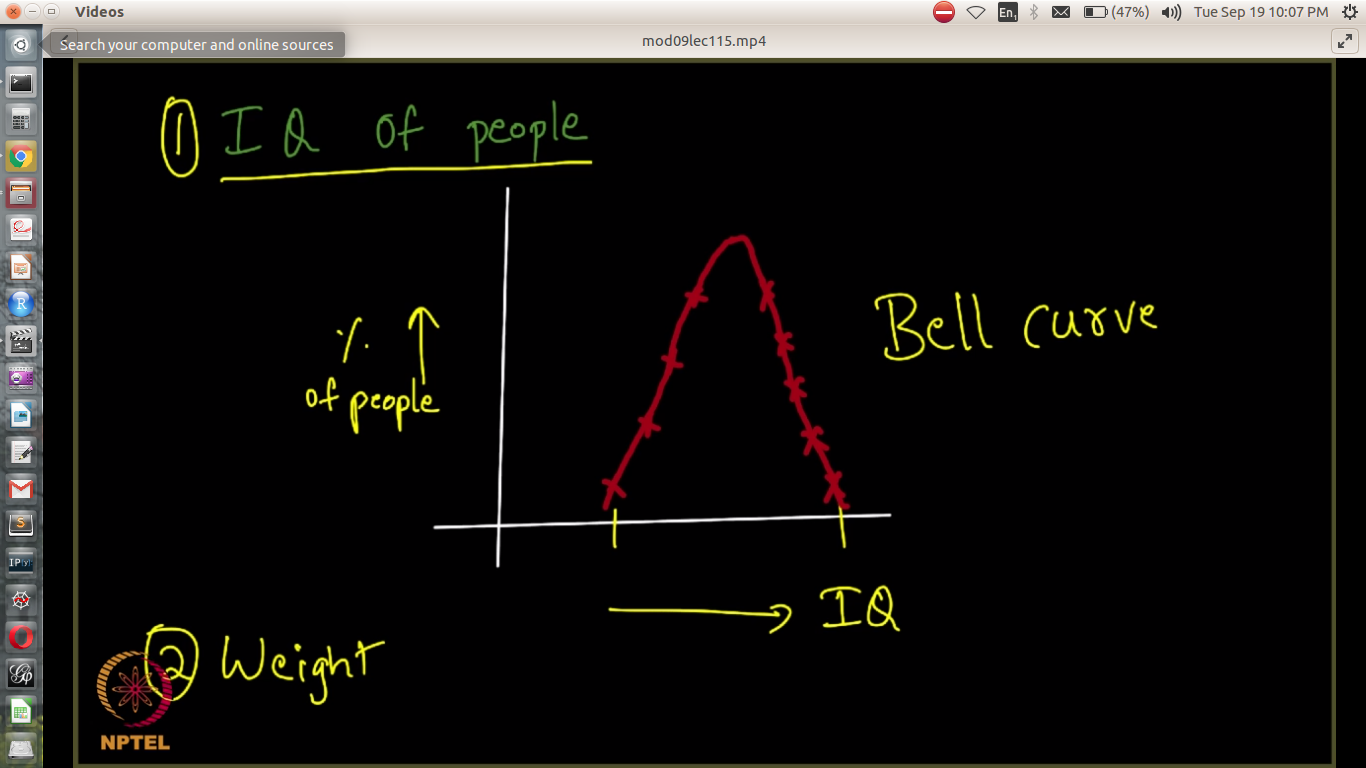 Videos
En1
(47%)
Tue Sep 19 10:07 PM
Search your computer and online sources
mod09lec115.mp4
1 IQ of people
%
of people
Bell curve
IQ
2 Weight
NPTEL
R
S
IP[y]: